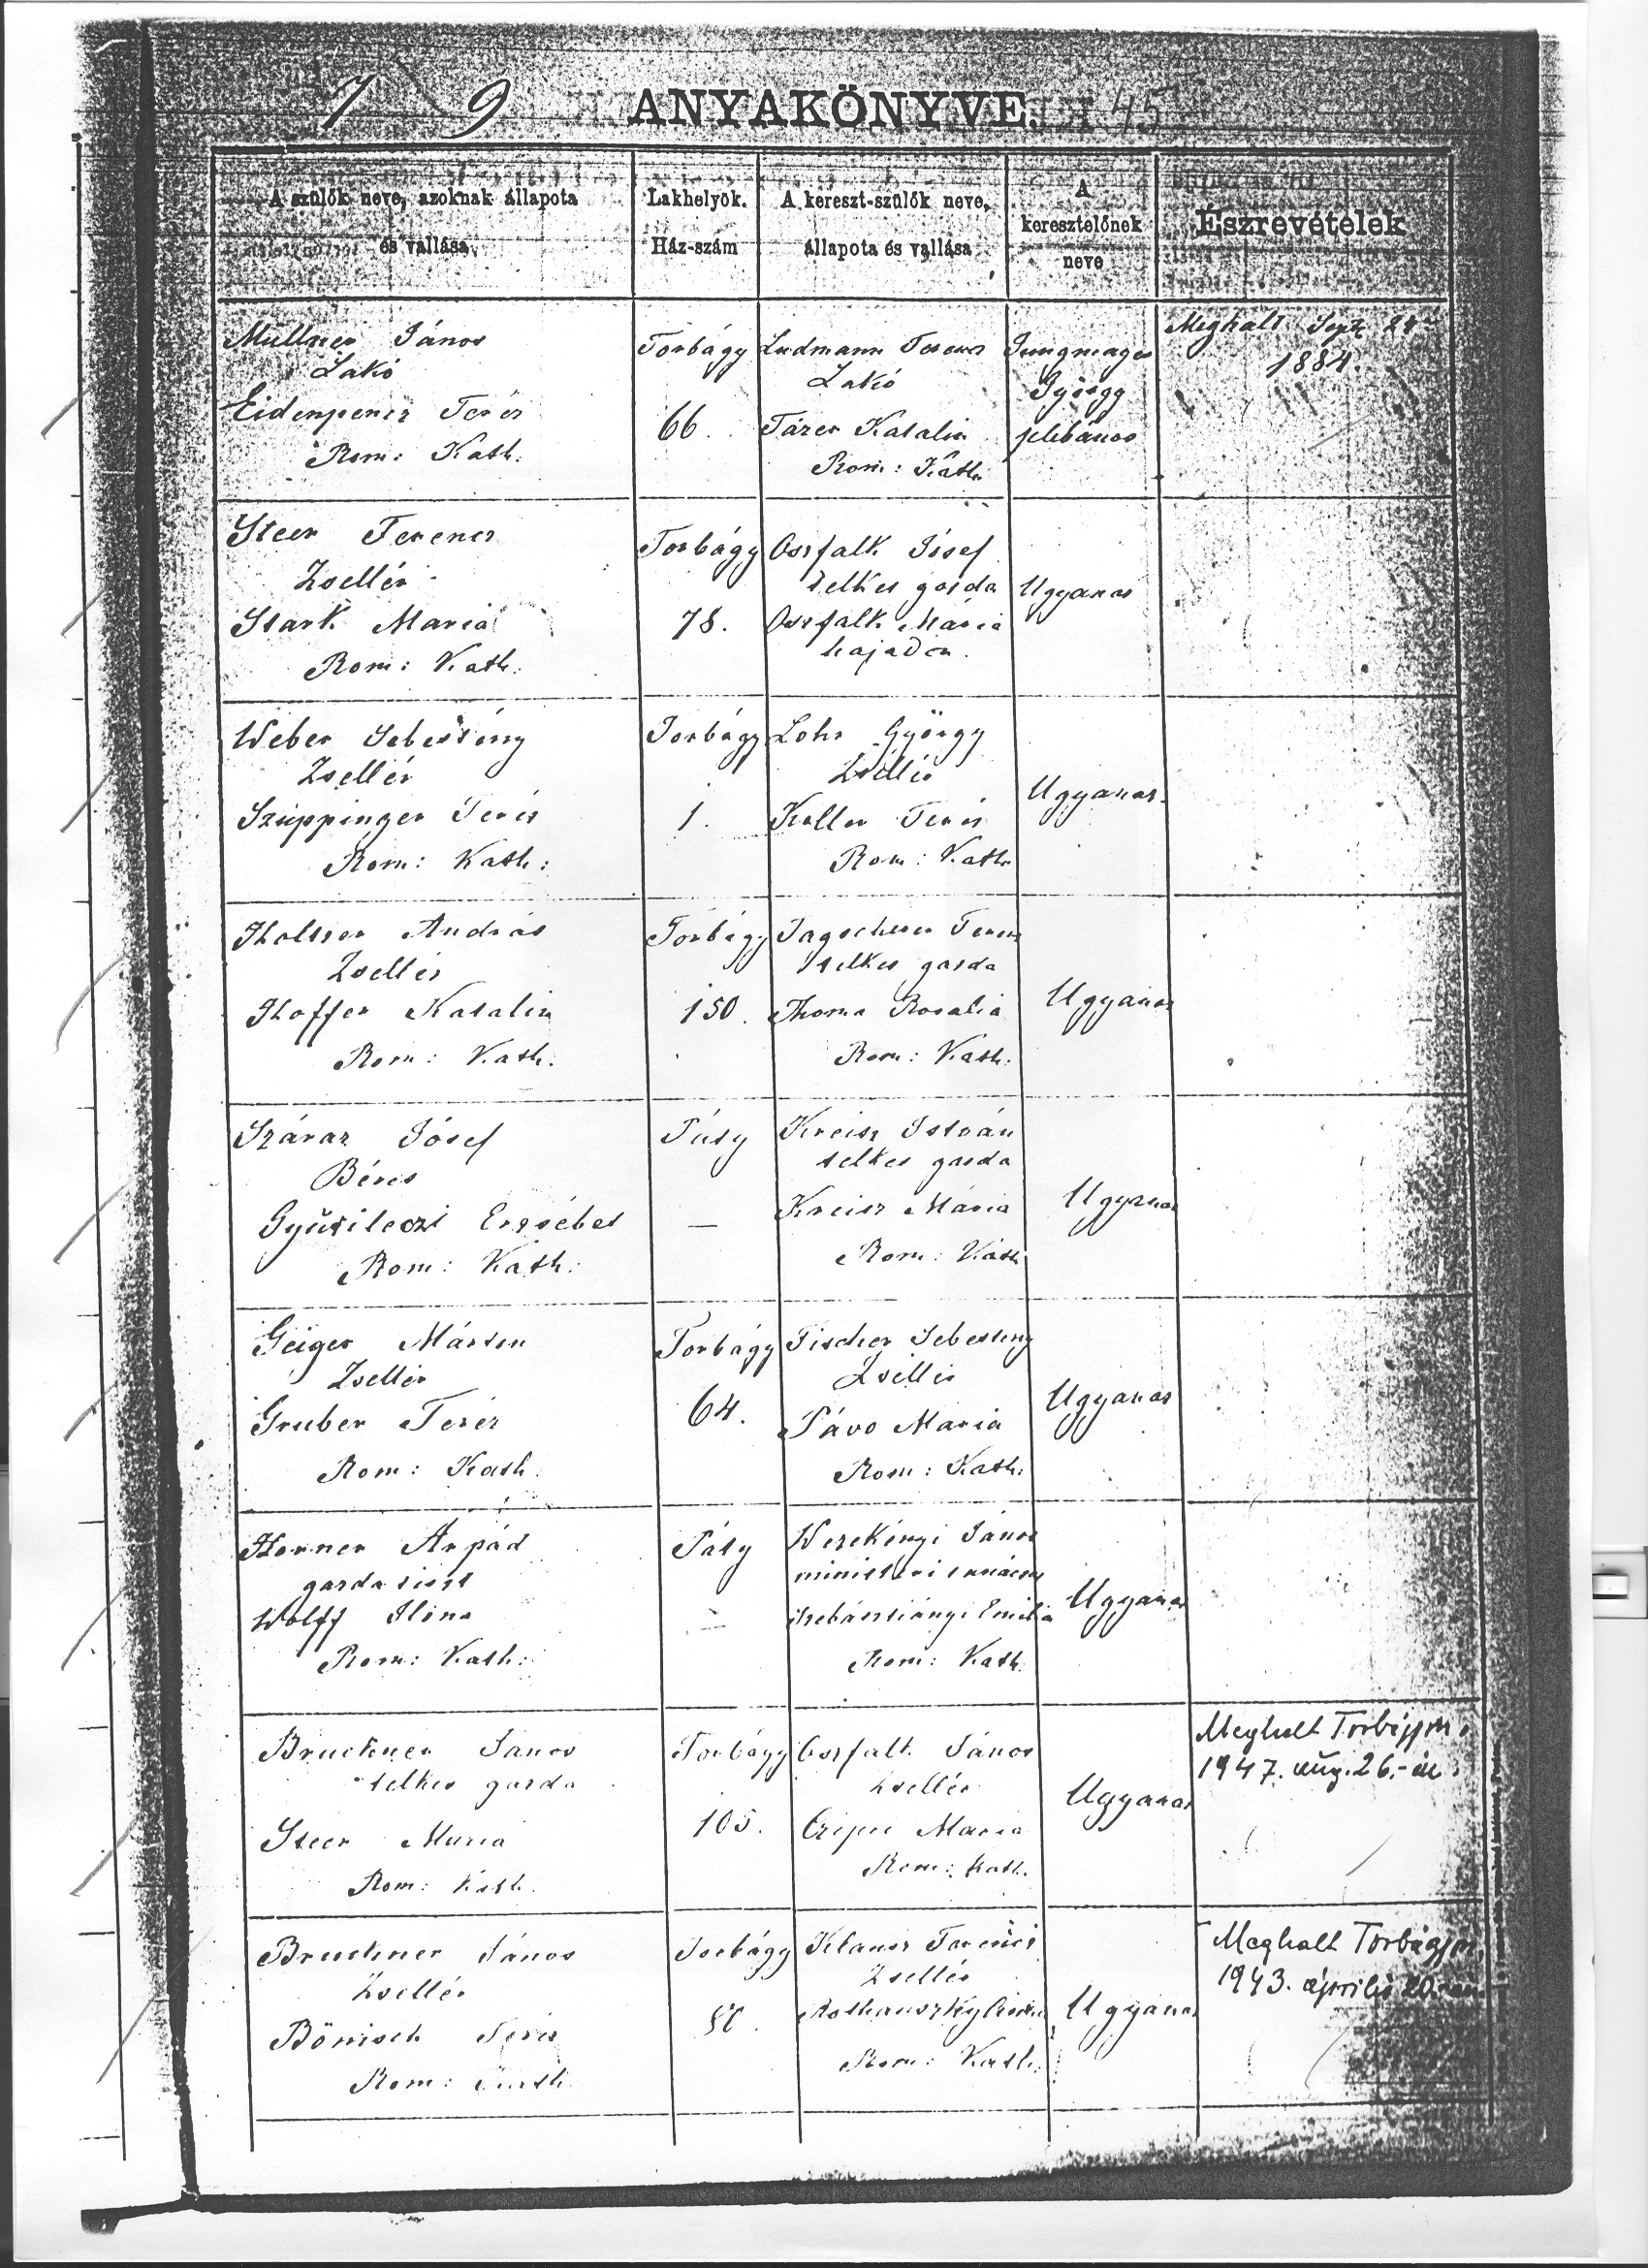 7 9 ANYAKÖNYVE. 45
A szülők neve, azoknak állapota
és vallása.
Lakhelyök.
Ház-szám
A kereszt-szülők neve,
állapota és vallása
A
keresztelőnek
neve
Észrevételek
Müllner János
Lakó
Teréz
Rom: Kath:
Torbágy
66.
Ludmann Ferencz
Lakó
Katalin
Rom: Kath
György
plébános
Meghalt Sept.
1884.
Steer Ferencz
Zsellér
Stark Maria
Rom: Kath:
Torbágy
78.
Oszfalk Jósef
telkes gazda
Oszfalk Mária
hajadon.
Ugyanaz
Weber Sebestény
Zsellér
Szuppinger Teréz
Rom: Kath:
Torbágy
1.
Lohr György
Zsellér
Koller Teréz
Rom: Kath
Ugyanaz
Holtzer András
Zsellér
Hoffer Katalin
Rom: Kath.
Torbágy
150.
Ferencz
telkes gazda
Thoma Rosalia
Rom: Kath:
Ugyanaz
Száraz Jósef
Béres
Erzsébet
Rom: Kath:
—
Kreisz István
telkes gazda
Kreisz Mária
Rom: Kath
Ugyanaz
Geiger Márton
Zsellér
Gruber Teréz
Rom: Kath.
Torbágy
64.
Fischer Sebestény
Zsellér
Pávo Maria
Rom: Kath:
Ugyanaz
Horner Árpád
gazdatiszt
Wolff Ilona
Rom: Kath:
János
Emilia
Rom: Kath:
Ugyanaz
Bruckner János
telkes gazda
Steer Maria
Rom: Kath.
Torbágy
105.
Oszfalk János
Zsellér
Maria
Rom: Kath.
Ugyanaz
Meghalt Torbágyon
1947. aug. 26.-án
Bruckner János
Zsellér
Bönisch Teréz
Rom: Kath
Torbágy
Klausz Ferencz
Zsellér
Rom: Kath:
Ugyanaz
Meghalt Torbágyon
1943. április 20.-án